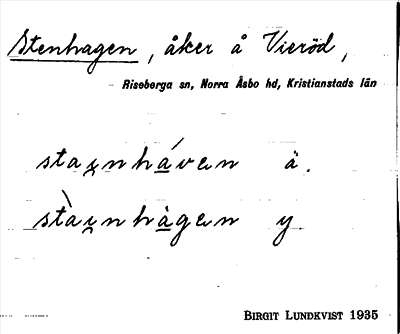 Stenhagen, åker å Vieröd,
Riseberga sn, Norra Åsbo hd, Kristianstads län
stax̯nhá̱ven ä.
stàx̯nhà̱gen y.
BIRGIT LUNDKVIST 1935